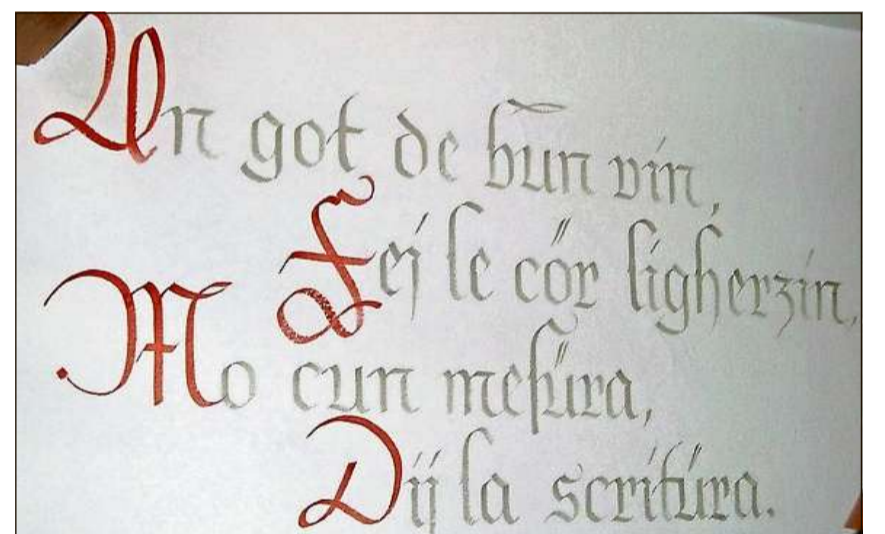 Un got de bun vin,
Fej le cör ligherzin,
Mo cun mesüra,
Dij la scritüra.